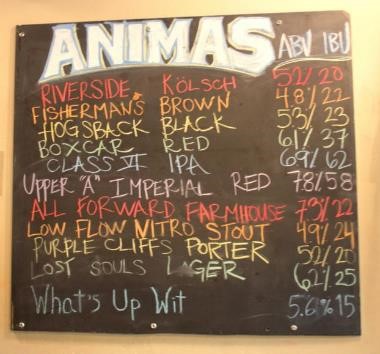 ANIMAS ABV IBU
RIVERSIDE KÖLSCH 52/20
FISHERMAN'S BROWN 4.8/22
HOGSBACK BLACK 53/23
BOXCAR RED 61/37
CLASS VI IPA 69/62
UPPER "A" IMPERIAL RED 78/58
ALL FORWARD FARMHOUSE 73/22
LOW FLOW NITRO STOUT 49/24
PURPLE CLIFFS PORTER 52/20
LOST SOULS LAGER 62/25
WHAT'S UP WIT 5.6%15